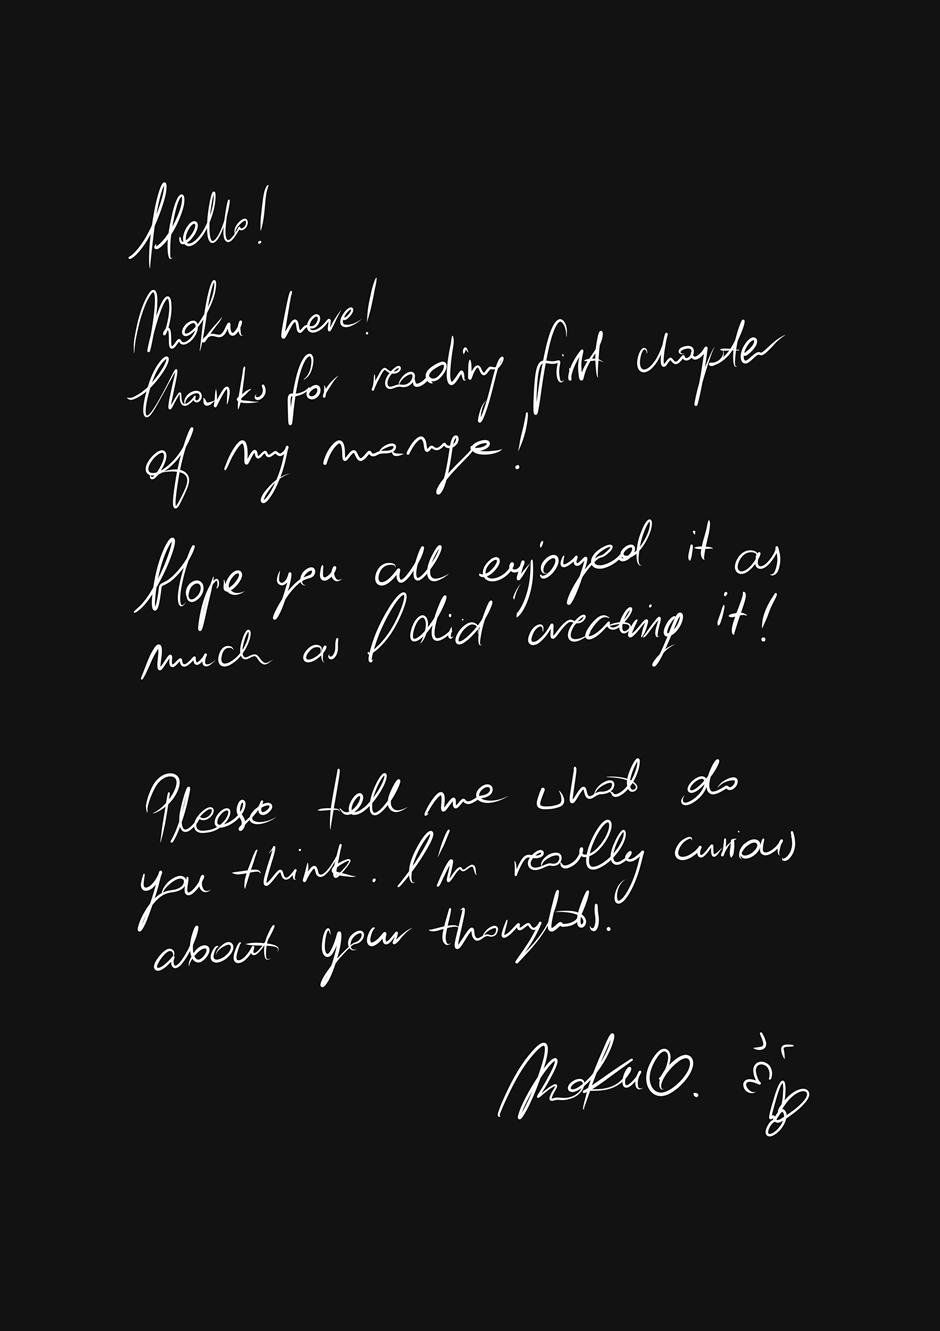 Hello!
Moku here!
Thanks for reading first chapter
of my manga!
Hope you all enjoyed it as
much as I did creating it!
Please tell me what do
you think. I'm really curious
about your thoughts.
Moku♡.